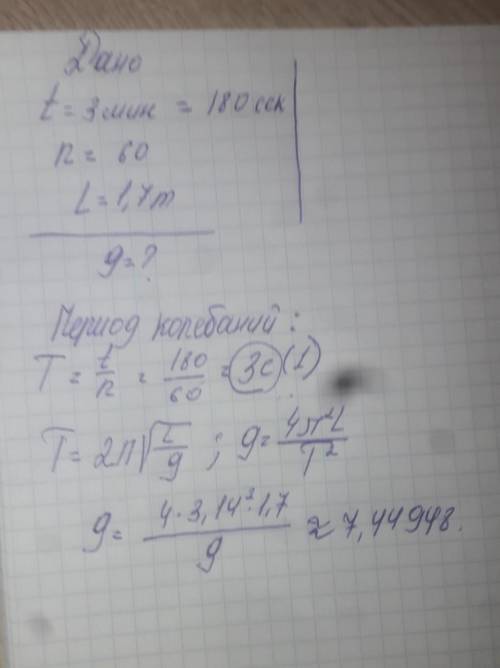 Дано
t = 3 мин = 180 сек
n = 60
L = 1,7 m
g = ?
Период колебаний:
T = t/n = 180/60 = 3с (1)
T = 2π√(L/g) ; g = 4π²L/T²
g = 4·3,14²·1,7/9 ≈ 7,44948.